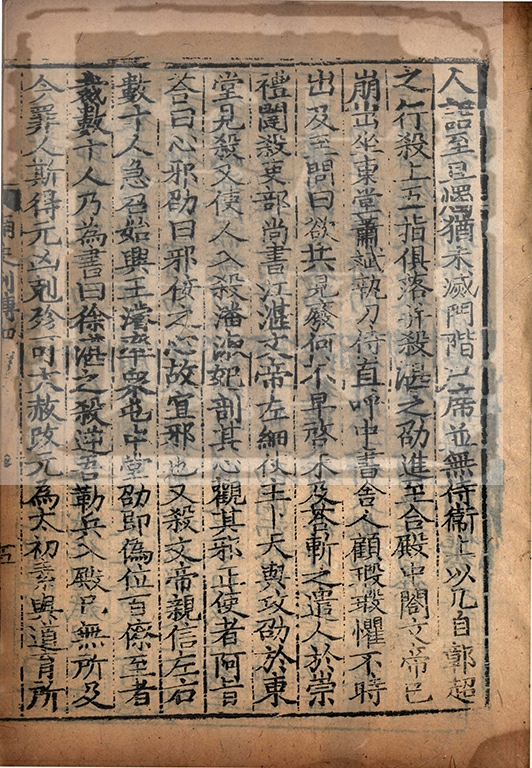 人語至旦燭猶未滅門階戶席並無侍衞上以几自鄣超
之行殺上五指俱落并殺湛之劭進至合殿中閤文帝已
崩出坐東堂蕭斌執刀侍直呼中書舍人顧瑕瑕懼不時
出及至問曰欲共見廢何不早啓未及荅斬之遣人於崇
禮闥殺吏部尚書江湛文帝左細仗主卜天與攻劭於東
堂見殺又使人入殺潘淑妃剖其心觀其邪正使者阿旨
荅曰心邪劭曰邪佞之心故宜邪也又殺文帝親信左右
數十人急召始興王濬率衆屯中堂劭即偽位百僚至者
裁數十人乃為書曰徐湛之殺逆吾勒兵入殿已無所及
今罪人斯得元凶剋殄可大赦改元為太初素與道育所
南史列傳四
五